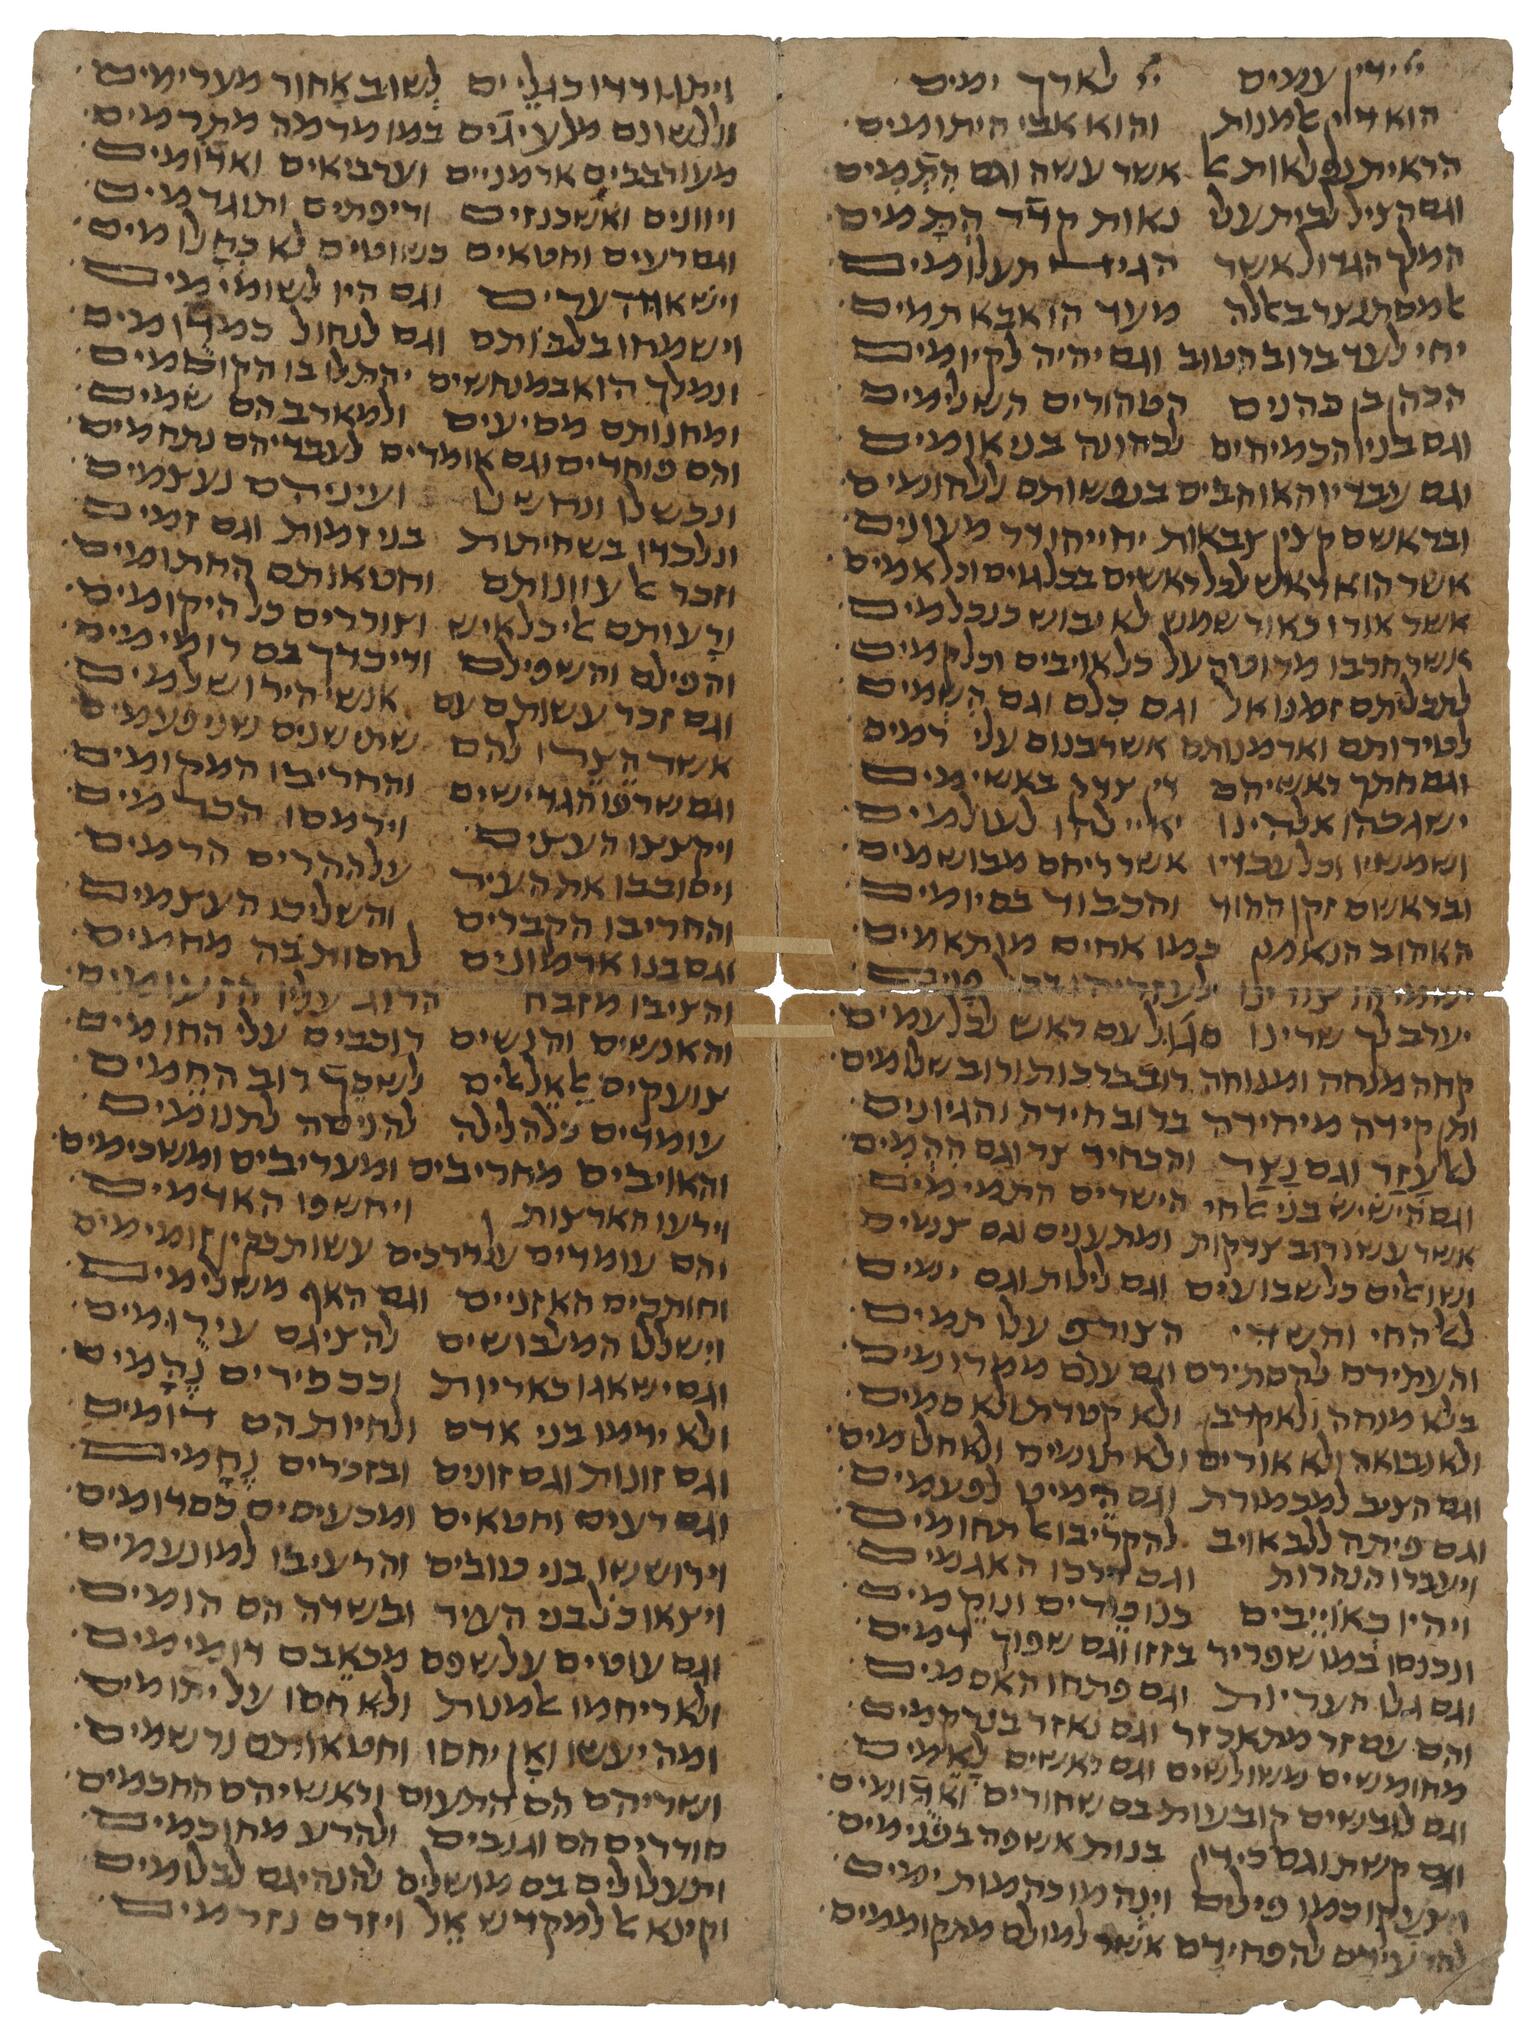 ייי ידין עמים ייי לארך ימים
הוא דין אלמנות והוא אבי היתומים
הראית נפלאות אל אשר עשה וגם התמים
וגם הציל לבית עלי נאות קדר התמים
המלך הגדול אשר הגיד תעלומים
יחי לעד ברוב הטוב וגם יהיה לקיומים
הכהן בן כהנים הטהורים השלימים
וגם בניו הכמיהים לכהונה בני אומים
וגם עבדיו האוהבים בנפשותם ללחומים
ובראשם קצין צבאות יחייהו דר מעונים
אשר הוא ראש לכל ראשים בכל גוים וכל אמים
אשר אורו כאור שמש לא יבוש כנכלמים
אשר חרבו מרוטה על כל אויבים וכל קמים
לתכליתם זמנו אל וגם כלם וגם השמים
לטירותם וארמנותם אשר בנום עלי רמים
וגם חתך ראשיהם די צרר באשימים
ישגבהו אלהינו לעולמים
ושמשיו וכל עבדיו אשר ריחם מבושמים
ובראשם זקן ההוד והכבוד בם יומים
האהוב הנאמן כמו אחים מותאמים
יערב לך שרינו סגול עם ראש לכל עמים
קחה מנחה ומנוחה רוב ברכות ורוב שלומים
ותן קידה מיחידה ברוב חידה והגיונים
לאל עזר וגם נצר והכחיד צר וגם ההמים
וגם הישיש בני אחי הישרים התמימים
אשר עשו רוב צדקות ומתענים וגם צמים
ושואלים כל שבועים וגם לילות וגם ימים
לאל החי והשדי הצופה עלי תמים
והעתירם להסתירם וגם עלם ממרומים
בלא מנחה ולא קרבן ולא קטרת ולא סמים
ולא נבואה ולא אורים ולא תומים ולא חלומים
וגם הציב למכמורת וגם המיט לפעמים
וגם פיתה ללב אויב להקריבו אל תחומים
ויעברו הנהרות וגם דרכו האגמים
ויהיו כאוייבים כנופרים ונוקמים
ונכנסו כמו שפריר בזזו וגם שפוך דמים
וגם גלו העריות וגם פתחו האסמים
והם עם זר מתאכזר וגם נאזר בנרקמים
מחומשים משולשים וגם ראשים לאמים
וגם לובשים קובעות בם שחורים ואדומים
וגם קשת וגם כידון בנות אשפה בפנימים
ויצעקו כמו פילים וינהמו כהמות ימים
להרעידם להפחידם אשר למולם מתקוממים
ויתגודדו כגליים לשוב אחור מערימים
וללשונם מלעיגים כמו מרמה מתרמים
מעורבבים ארמניים וערביאים ואדומים
ויוונים ואשכנזים וריפתים ותוגרמים
וגם רעים וחטאים כשוטים לא כחלומים
וישאו הערים וגם היו לשוממים
וישמחו בלבותם וגם לנחול כמדומים
ונמלך הוא במנחשים יהתלו בו הקוסמים
ומחנותם מסיעים ולמארבהם שמים
והם פוחדים וגם אומרים לעבריהם נתחמים
ונכשלו ונחשלו ועיניהם נעצמים
ונלכדו בשחיתות בני זמות וגם זמים
וזכר אל עוונותם וחטאותם החתומים
ורעותם אל כל איש וצוררים כל היקומים
והפילם והשפילם וריכדך בם רומימים
וגם זכר עשותם עם אנשי הירושלמים
אשר הצרו להם שתי שנים שני פעמים
וגם שרפו הגדישים והחריבו המקומים
ויקצצו העצים וירמסו הכרמים
ויסובבו את העיר על ההרים הרמים
והחריבו הקברים והשליכו העצמים
וגם בנו ארמונים לחסות בה מחמים
והציבו מזבח הרוג עליו הזעומים
והאנשים והנשים רוכבים עלי החומים
צועקים אל אל אלים לשכך רוב החמים
עומדים כל הלילה להניסה לתנומים
והאויבים מחריבים ומעריבים ומשכימים
וירעו הארצות ויחשפו האדמים
והם עומדים על דרכים עשות כקין זומימים
וחותכים האזניים וגם האף משלימים
וישללו המלבושים להציגם עירומים
וגם ישאגו כאריות וככפירים נהמים
ולא ידמו בני אדם ולחיות הם דומים
וגם זונות וגם זונים ובזכרים נחמים
וגם רעים וחטאים ומכעיסים כסדומים
וירוששו בני טובים והרעיבו למונעמים
ויצאו כל בני העיר ובשדה הם הומים
וגם עוטים על שפם מכאבם דומימים
ולא ריחמו אלמנות ולא חסו על יתומים
ומה יעשו ואן יחסו וחטאותם נרשמים
ושריהם הם להתעום וראשיהם החכמים
סוררים הם וגנבים ולהרע מחוכמים
ותעלולים בם מושלים להנהיגם לבלומים
וקינא אל למקדש אל ויזרם נזרמים